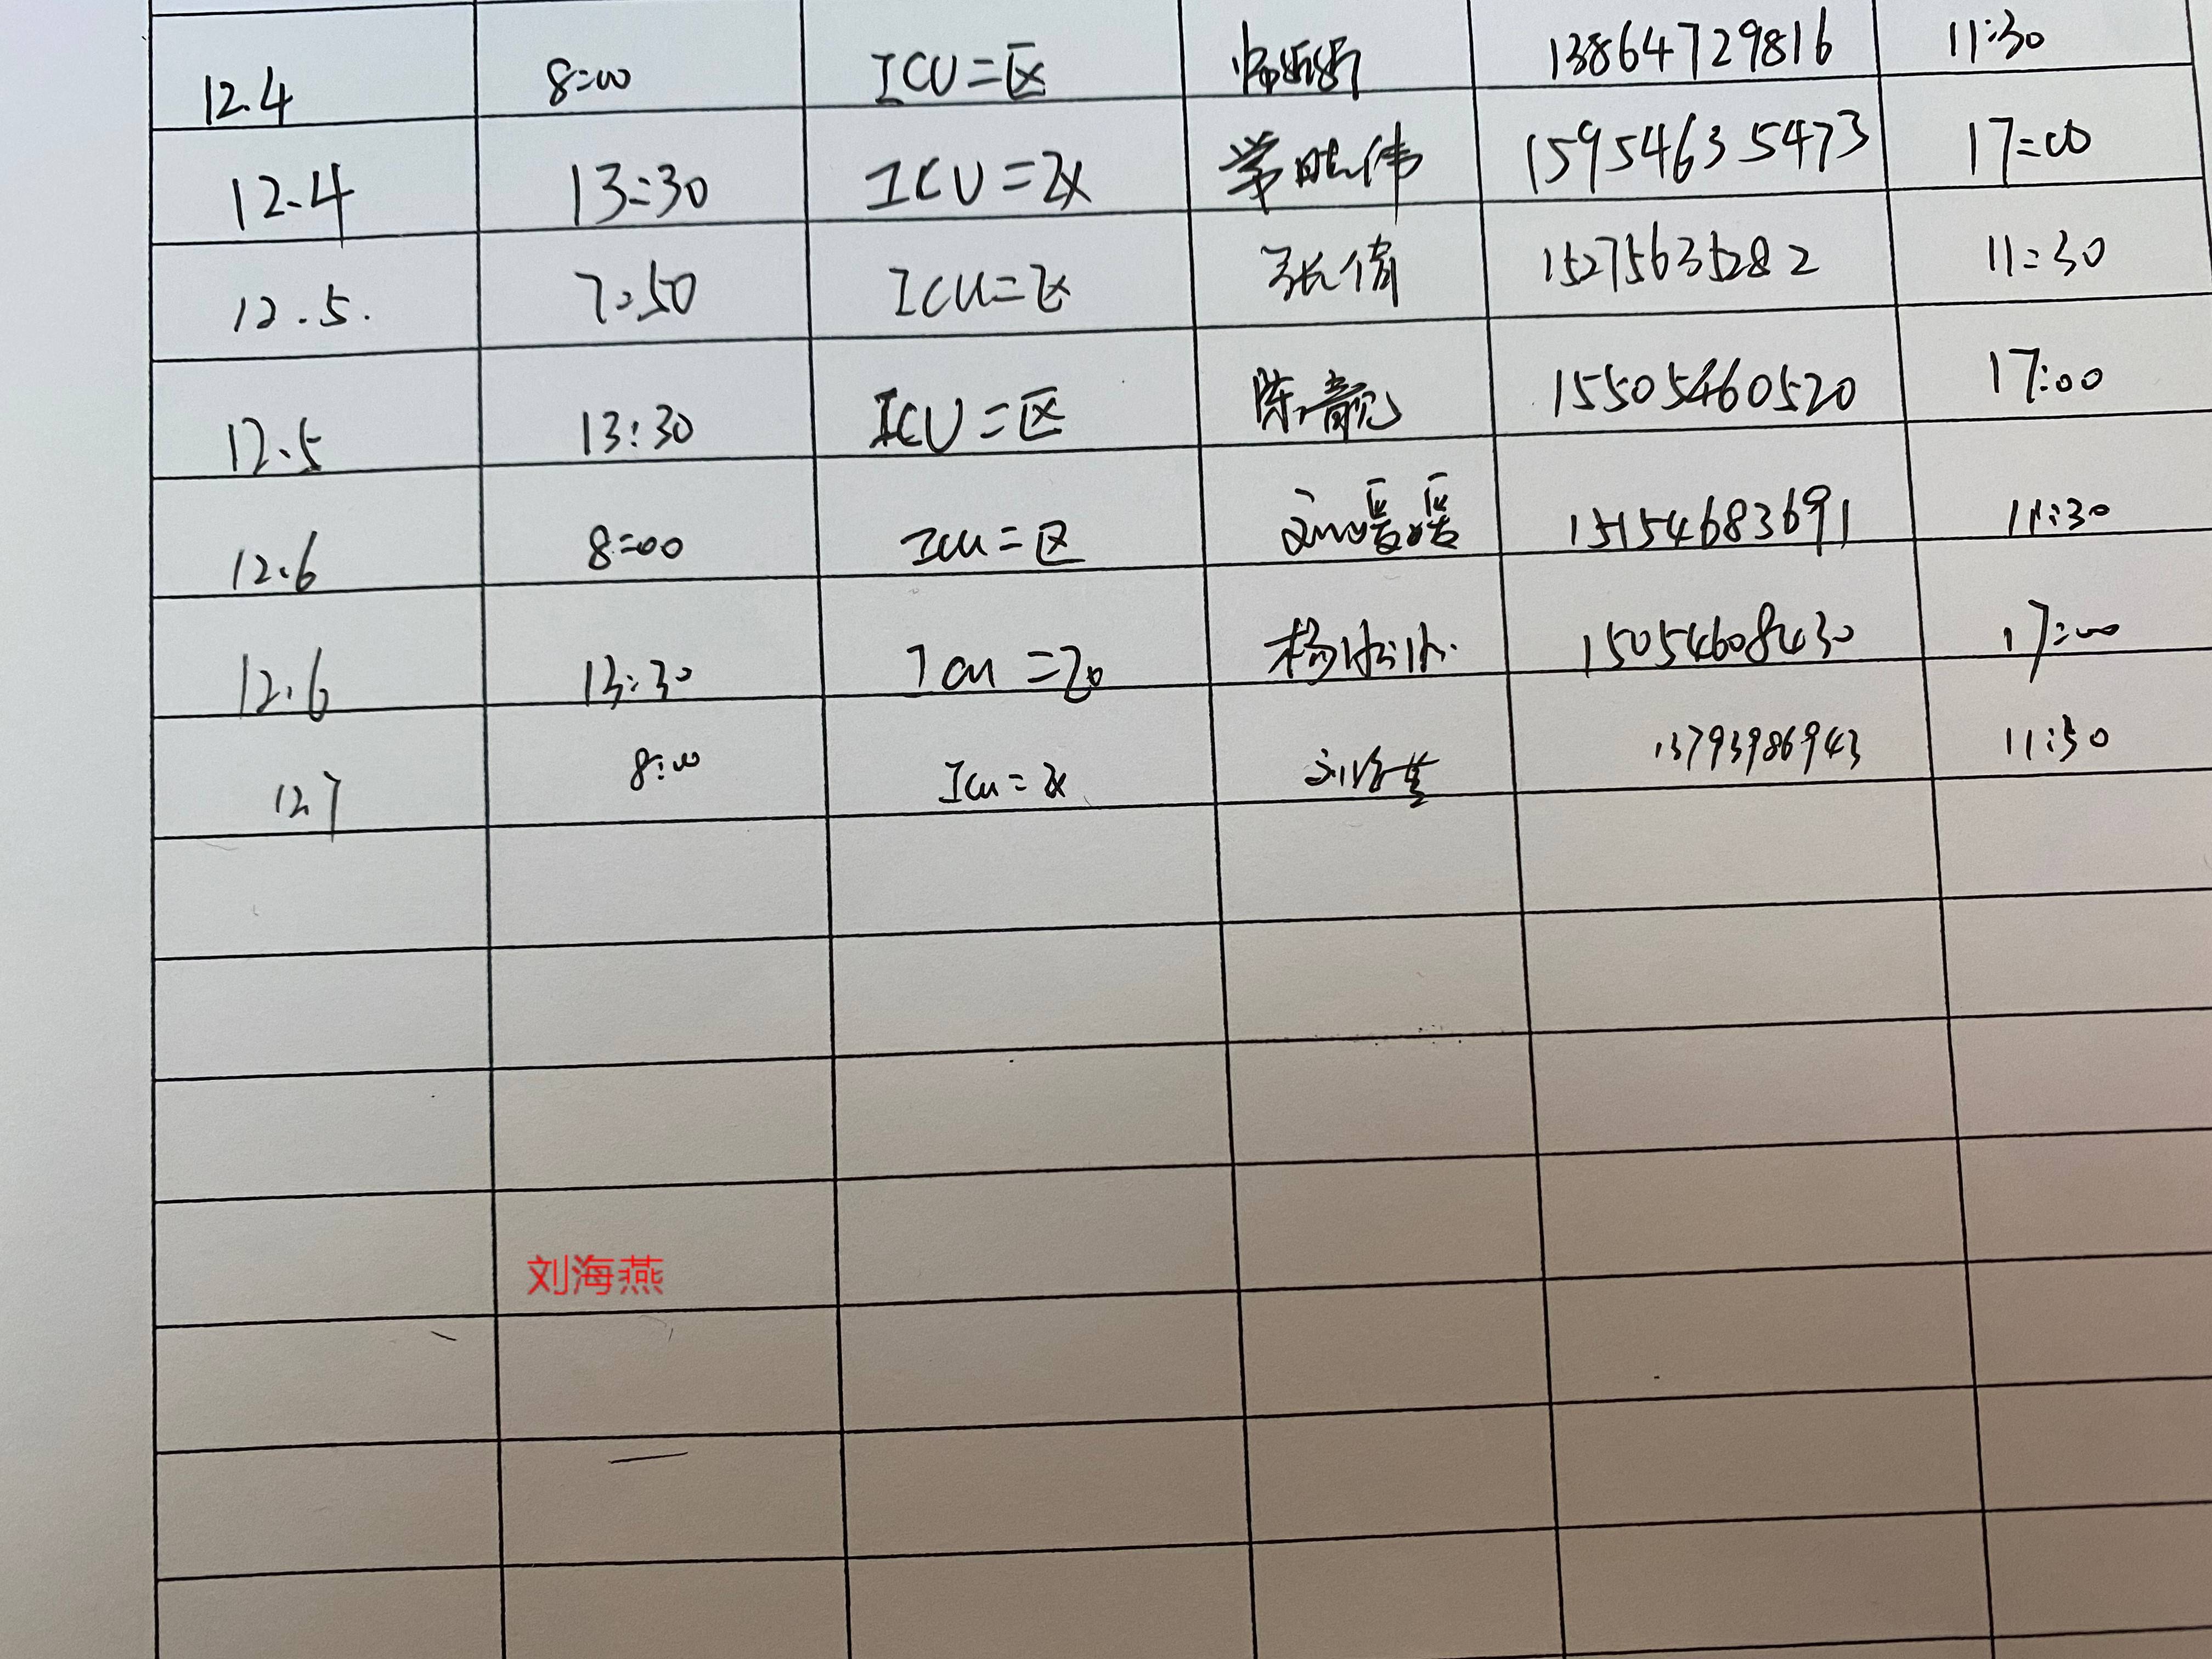 12.4 8:00 ICU二区 13864729816 11:30
12.4 13:30 ICU二区 常晓伟 15954635473 17:00
12.5. 7:50 ICU二区 张倩 15275635282 11:30
12.5 13:30 ICU二区 陈靓 15505460520 17:00
12.6 8:00 ICU二区 刘媛媛 15154683691 11:30
12.6 13:30 ICU二区 杨 15054608430 17:00
12.7 8:00 ICU二区 刘 13793986943 11:30
刘海燕